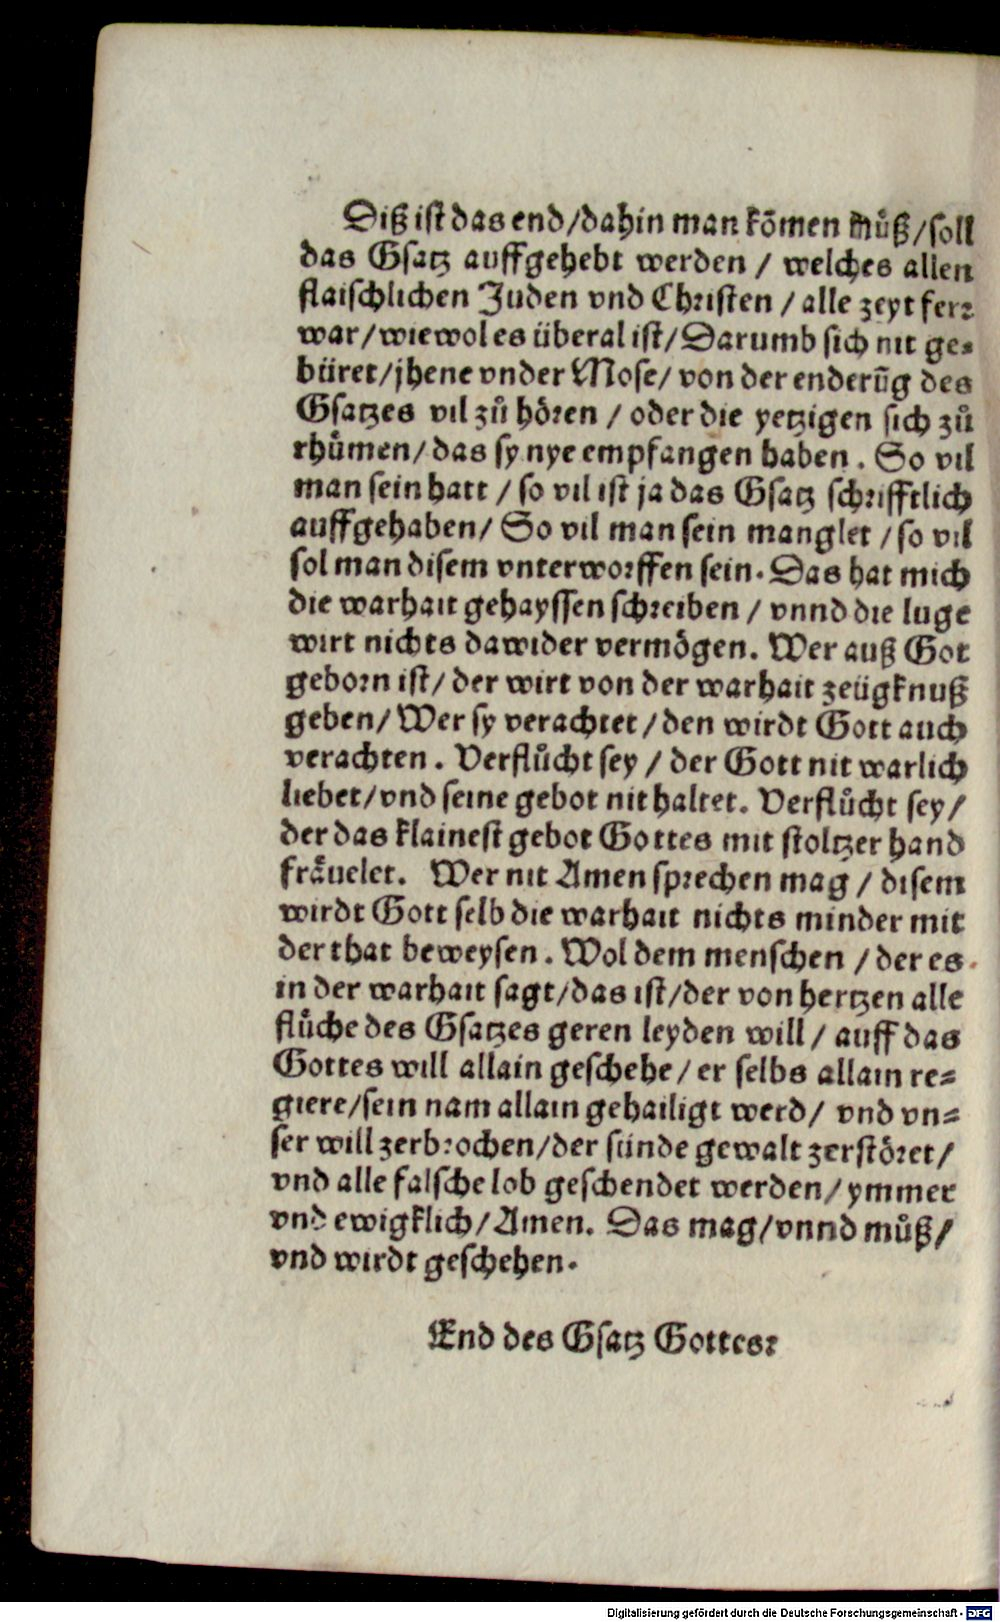 Diß ist das end/dahin man kõmen můß/soll
das Gsatz auffgehebt werden / welches allen
flaischlichen Juden vnd Christen / alle zeyt ferr
war/wiewol es überal ist/Darumb sich nit ge-
büret/jhene vnder Mose/ von der enderũg des
Gsatzes vil zů hören / oder die yetzigen sich zů
rhůmen/das sy nye empfangen haben. So vil
man sein hatt / so vil ist ja das Gsatz schrifftlich
auffgehaben/ So vil man sein manglet / so vil
sol man disem vnterworffen sein. Das hat mich
die warhait gehayssen schreiben / vnnd die luge
wirt nichts dawider vermögen. Wer auß Got
geborn ist/ der wirt von der warhait zeügknuß
geben/ Wer sy verachtet/den wirdt Gott auch
verachten. Verflůcht sey / der Gott nit warlich
liebet/vnd seine gebot nit haltet. Verflůcht sey/
der das klainest gebot Gottes mit stoltzer hand
fräuelet. Wer nit Amen sprechen mag / disem
wirdt Gott selb die warhait nichts minder mit
der that beweysen. Wol dem menschen / der es
in der warhait sagt/das ist/der von hertzen alle
flůche des Gsatzes geren leyden will / auff das
Gottes will allain geschehe/er selbs allain re-
giere/sein nam allain gehailigt werd/ vnd vn-
ser will zerbrochen/der sünde gewalt zerstöret/
vnd alle falsche lob geschendet werden/ymmer
vnd ewigklich/Amen. Das mag/vnnd můß/
vnd wirdt geschehen.
End des Gsatz Gottes:
Digitalisierung gefördert durch die Deutsche Forschungsgemeinschaft - DFG